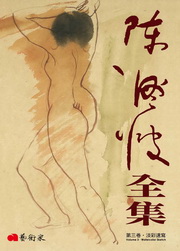 陈澄波
全集
第三卷・淡彩速寫
Volume 3 · Watercolor Sketch
藝術家